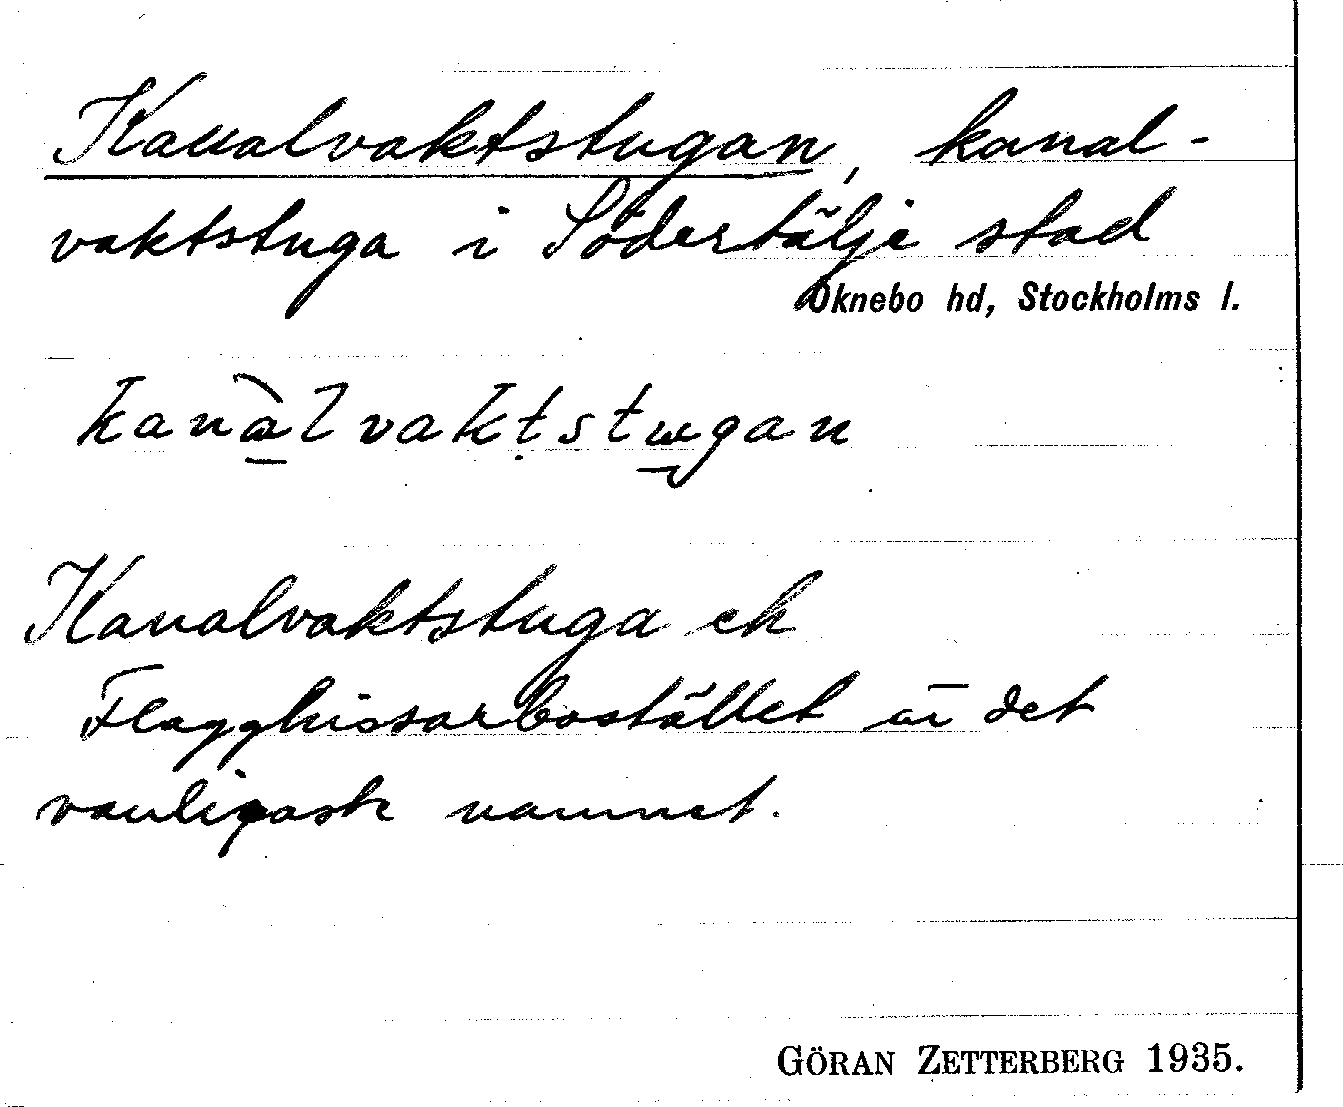 Kanalvaktstugan, kanal-
vaktstuga i Södertälje stad
Öknebo hd, Stockholms l.
kanalvaktstugan
Kanalvaktstuga ek
Flagghissarbostället är det
vanligaste namnet.
GÖRAN ZETTERBERG 1935.